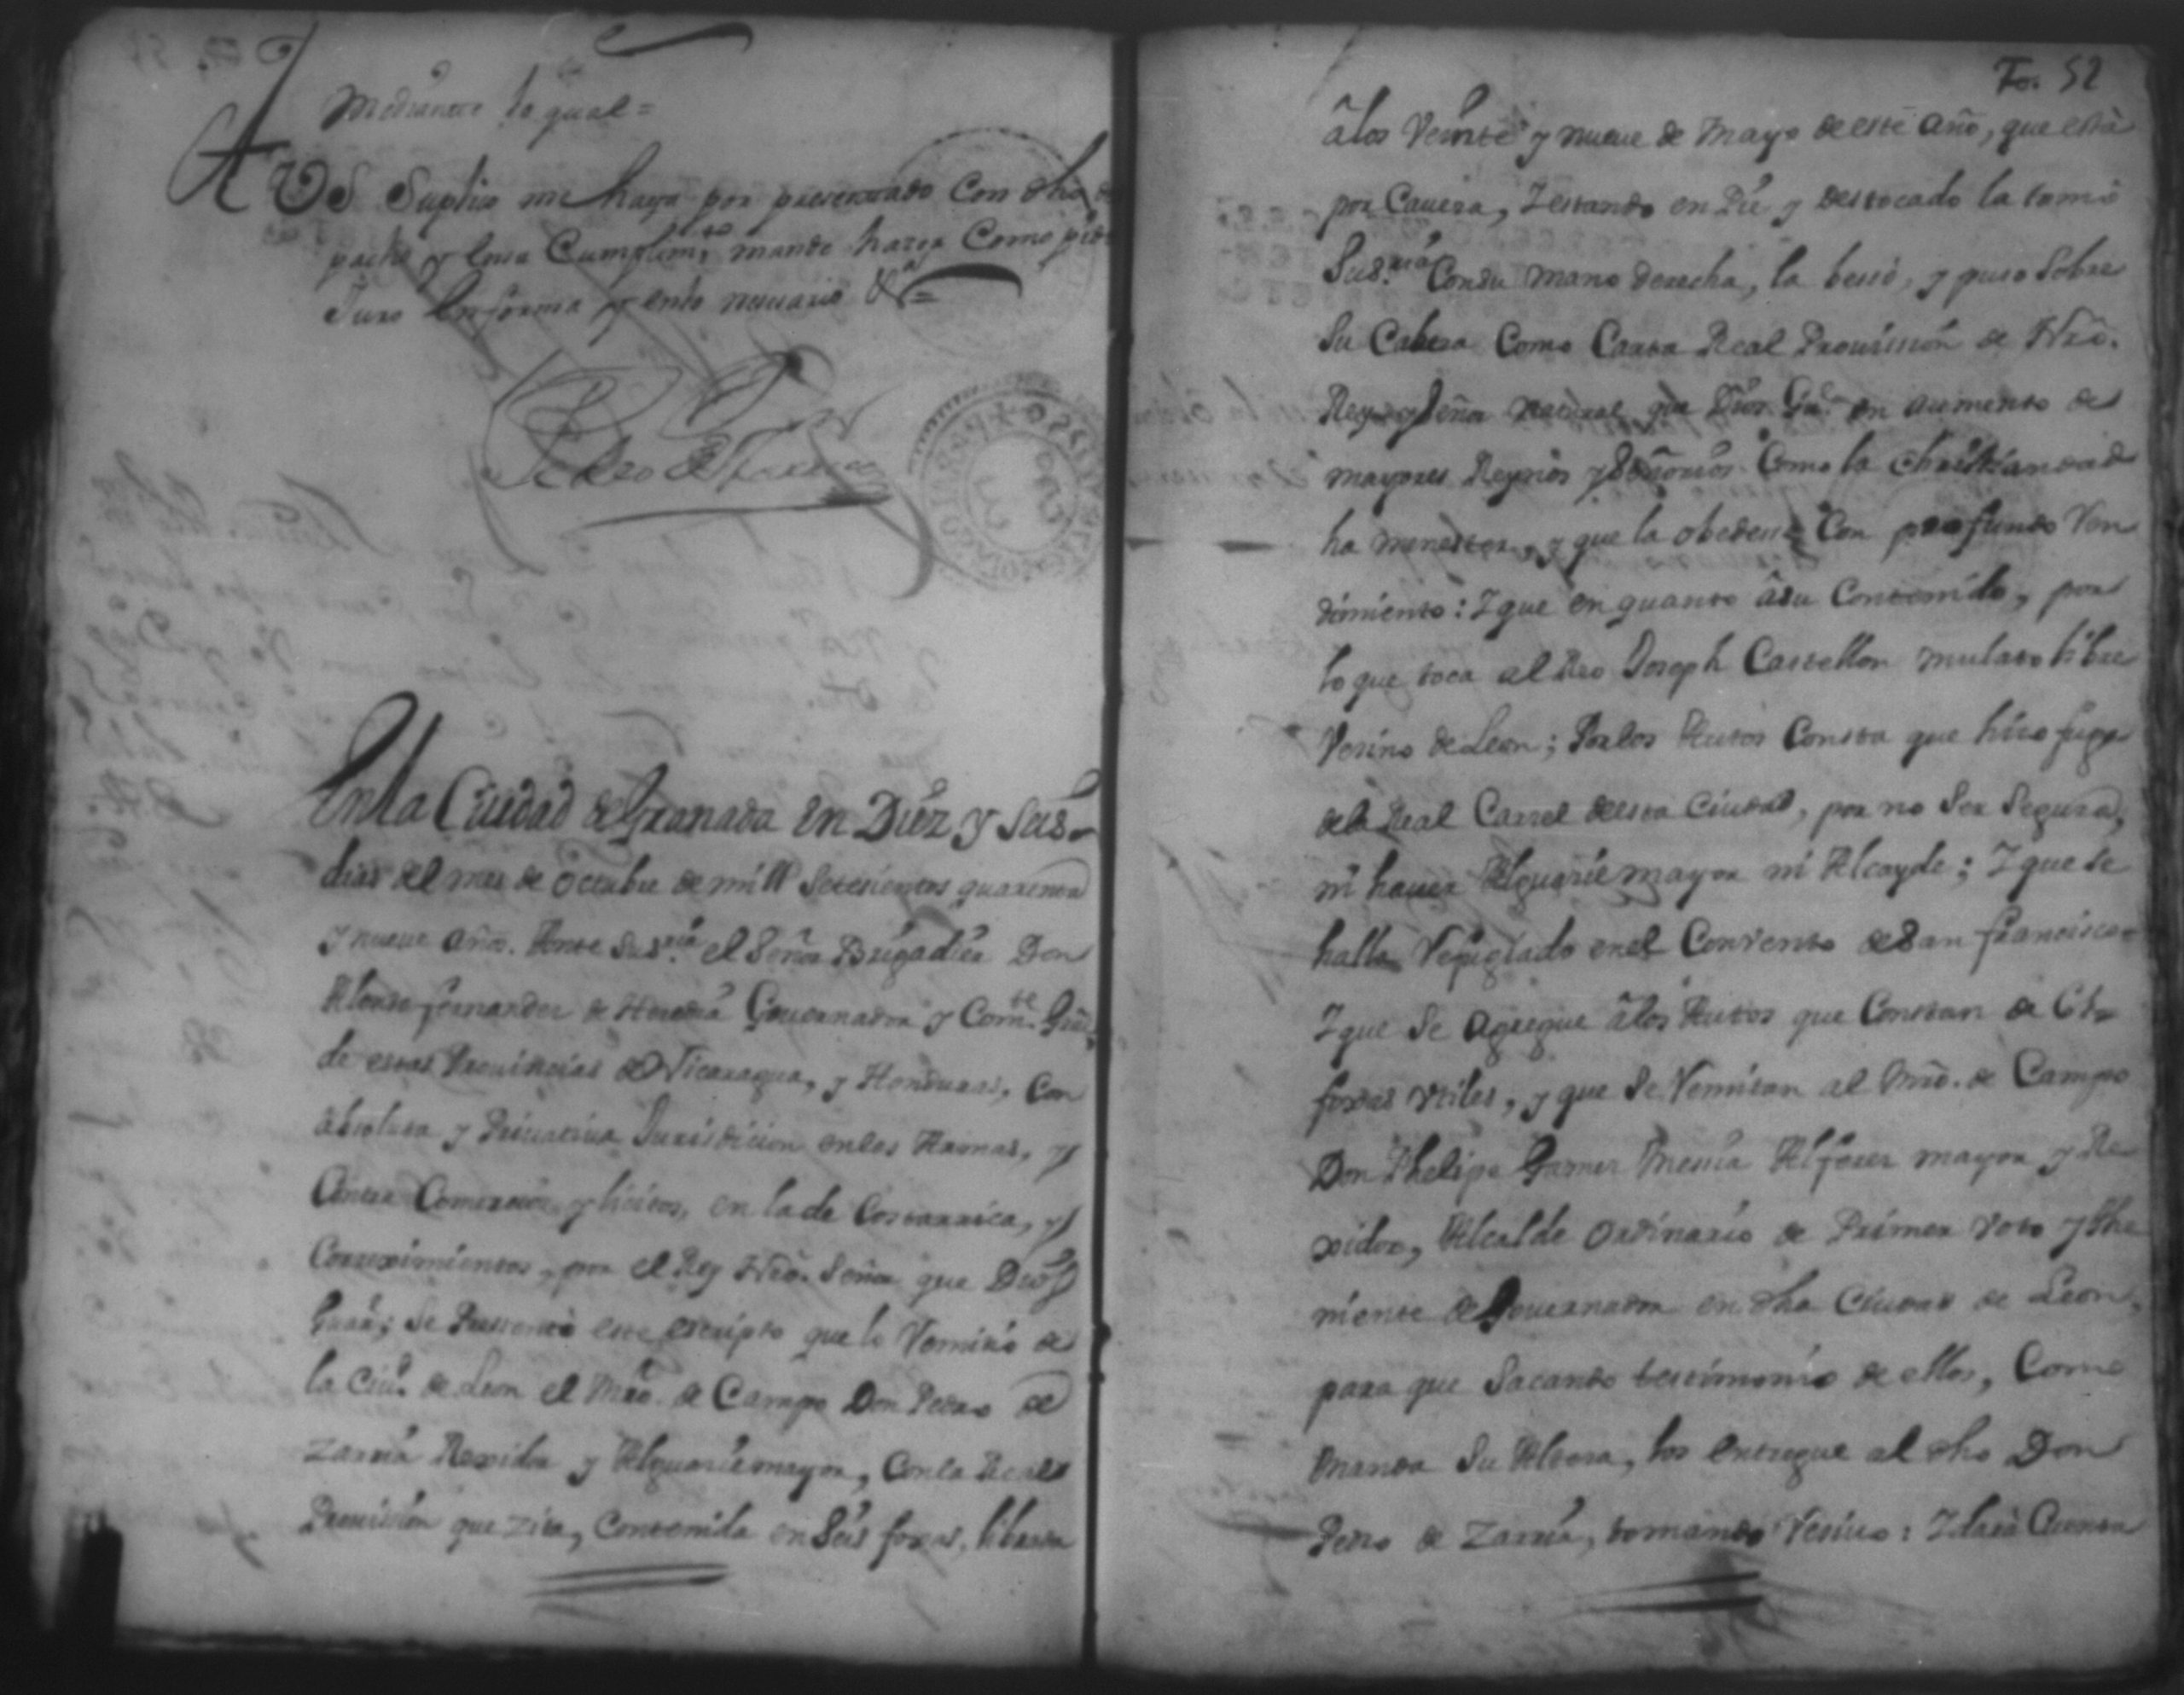 Mediante lo qual=
A VS Suplico me haya por presentado Con dho des
pacho y en su Cumplim.to mande hazer Como pido
Juro en forma y en lo nesesario &a=
Pedro de Zarria
En la Ciudad de Granada en Diez y seis
dias del mes de Octubre de mill Setesientos quarenta
y nueve años. Ante Su S.ria el Señor Brigadier Don
Alonso fernandez de Heredia Governador y Com.te Gral
de estas Provinsias de Nicaragua, y Honduras, Con
absoluta y Privativa Jurisdicion en los Harmas, y
Contra Comercios ylicitos, en la de Costarrica, y
Correximientos, por el Rey Nrô. Señor que Dios
guarde; Se Pressentò este escripto que le Remitió de
la Ciud. de Leon el Mrô. de Campo Don Pedro de
Zarria Rexidor y Alguasil mayor, Con la Real
Provision que zita, Contenida en Seis foxas, librada
Fo. 52
â los Veinte y nueve de Mayo de este año, que està
por Caveza, Y estando en Pie y destocado la tomò
Su S.ria Con su mano derecha, la besò, y puso Sobre
Su Cabeza Como Carta Real Provission de Nrô.
Rey y Señor natural que Dios Gue. en aumento de
mayores Reynos y Señorios Como la Christiandad
ha menester, y que la obedesse Con profundo Ren
dimiento: Y que en quanto â su Contenido, por
lo que toca al Reo Joseph Castellon mulato libre
Vesino de Leon; Por los Autos Consta que hizo fuga
de la Real Carsel de esta Ciudad, por no Ser Segura,
ni haver Alguasil mayor ni Alcayde; Y que se
halla Refugiado en el Convento de San francisco
Y que Se agregue â los Autos que Constan de
foxas utiles, y que Se Remitan al Mrô. de Campo
Don Phelipe Gamez Mesia Alferez mayor y Re
xidor, Alcalde Ordinario de Primer voto y The
niente de Governador en dha Ciudad de Leon,
para que Sacando testimonio de ellos, Como
Manda Su Alteza, los entregue al dho Don
Pedro de Zarria, tomando Resivo: Y darà Cuenta